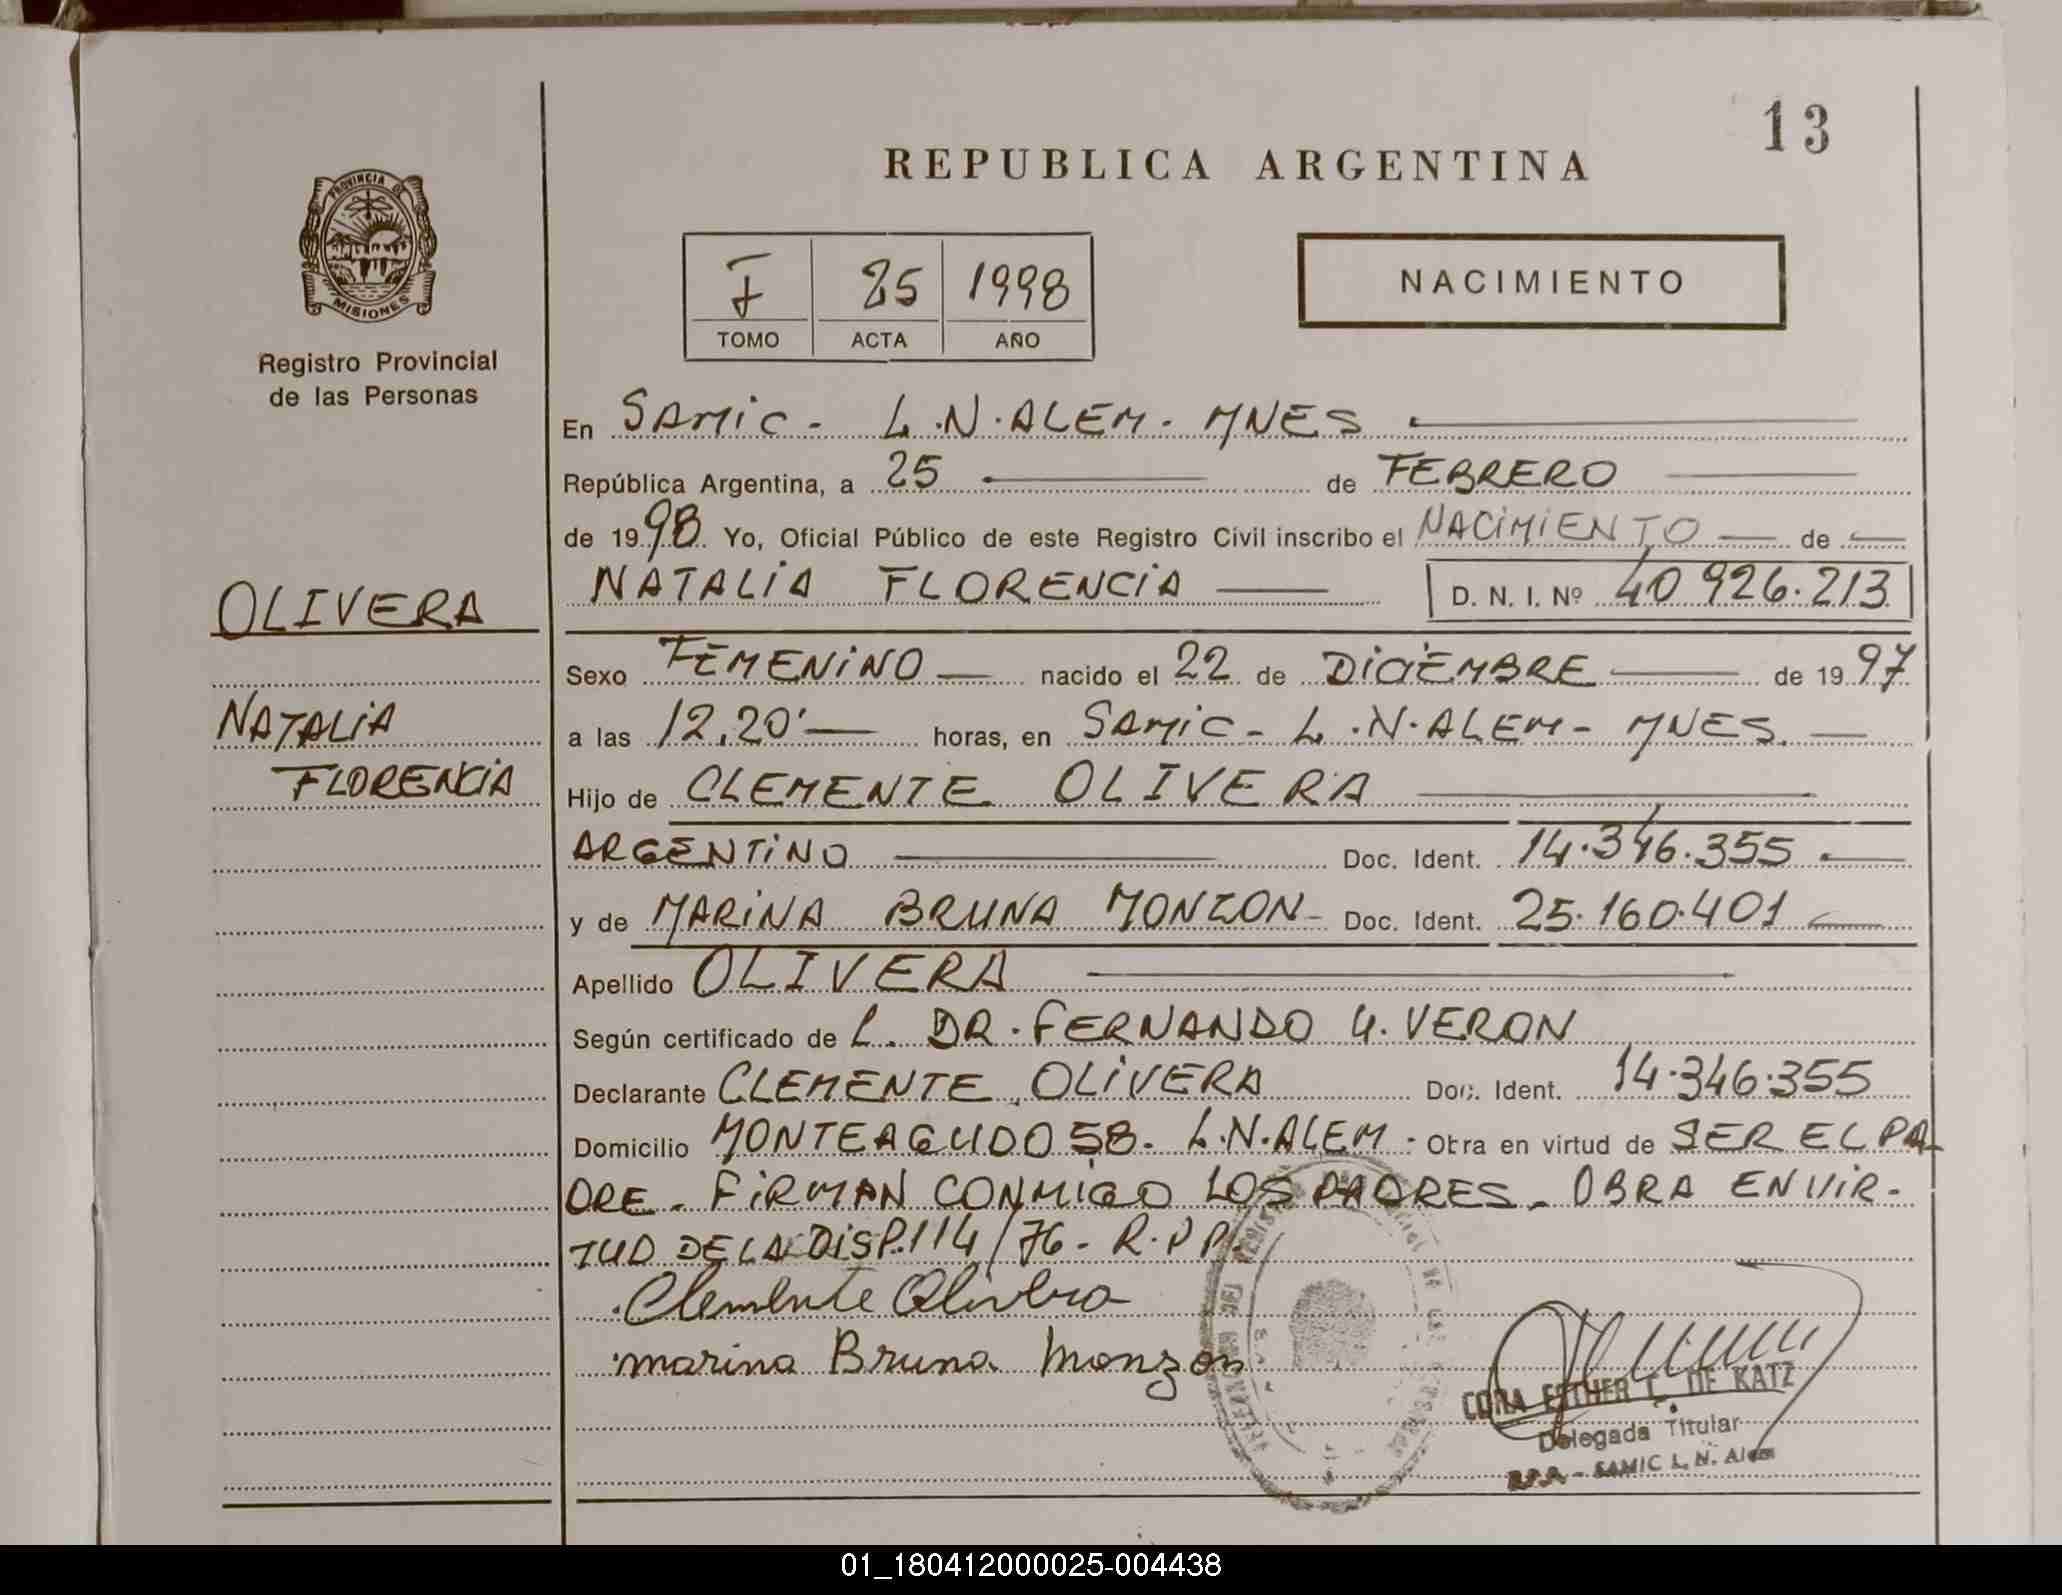 13
REPUBLICA ARGENTINA
PROVINCIA DE
MISIONES
Registro Provincial
de las Personas
F 25 1998
TOMO ACTA AÑO
NACIMIENTO
En SAMIC - L.N. ALEM - MNES
República Argentina, a 25 de FEBRERO
de 1998 Yo, Oficial Público de este Registro Civil inscribo el NACIMIENTO de
NATALIA FLORENCIA D. N. I. Nº 40 926.213
OLIVERA
Sexo FEMENINO nacido el 22 de DICIEMBRE de 1997
NATALIA
a las 12,20' horas, en SAMIC - L.N. ALEM - MNES.
FLORENCIA
Hijo de CLEMENTE OLIVERA
ARGENTINO Doc. Ident. 14.346.355
y de MARINA BRUNA MONZON - Doc. Ident. 25.160.401
Apellido OLIVERA
Según certificado de L. DR. FERNANDO G. VERON
Declarante CLEMENTE OLIVERA Doc. Ident. 14.346.355
Domicilio MONTEAGUDO 58 - L.N. ALEM - Obra en virtud de SER EL PA-
DRE - FIRMAN CONMIGO LOS PADRES - OBRA EN VIR-
TUD DE LA DISP. 114/76 - R.P.P.
Clemente Olivera
marina Bruna monzon
CORA ESTHER L. DE KATZ
Delegada Titular
R.P.P. - SAMIC L. N. Alem
01_180412000025-004438